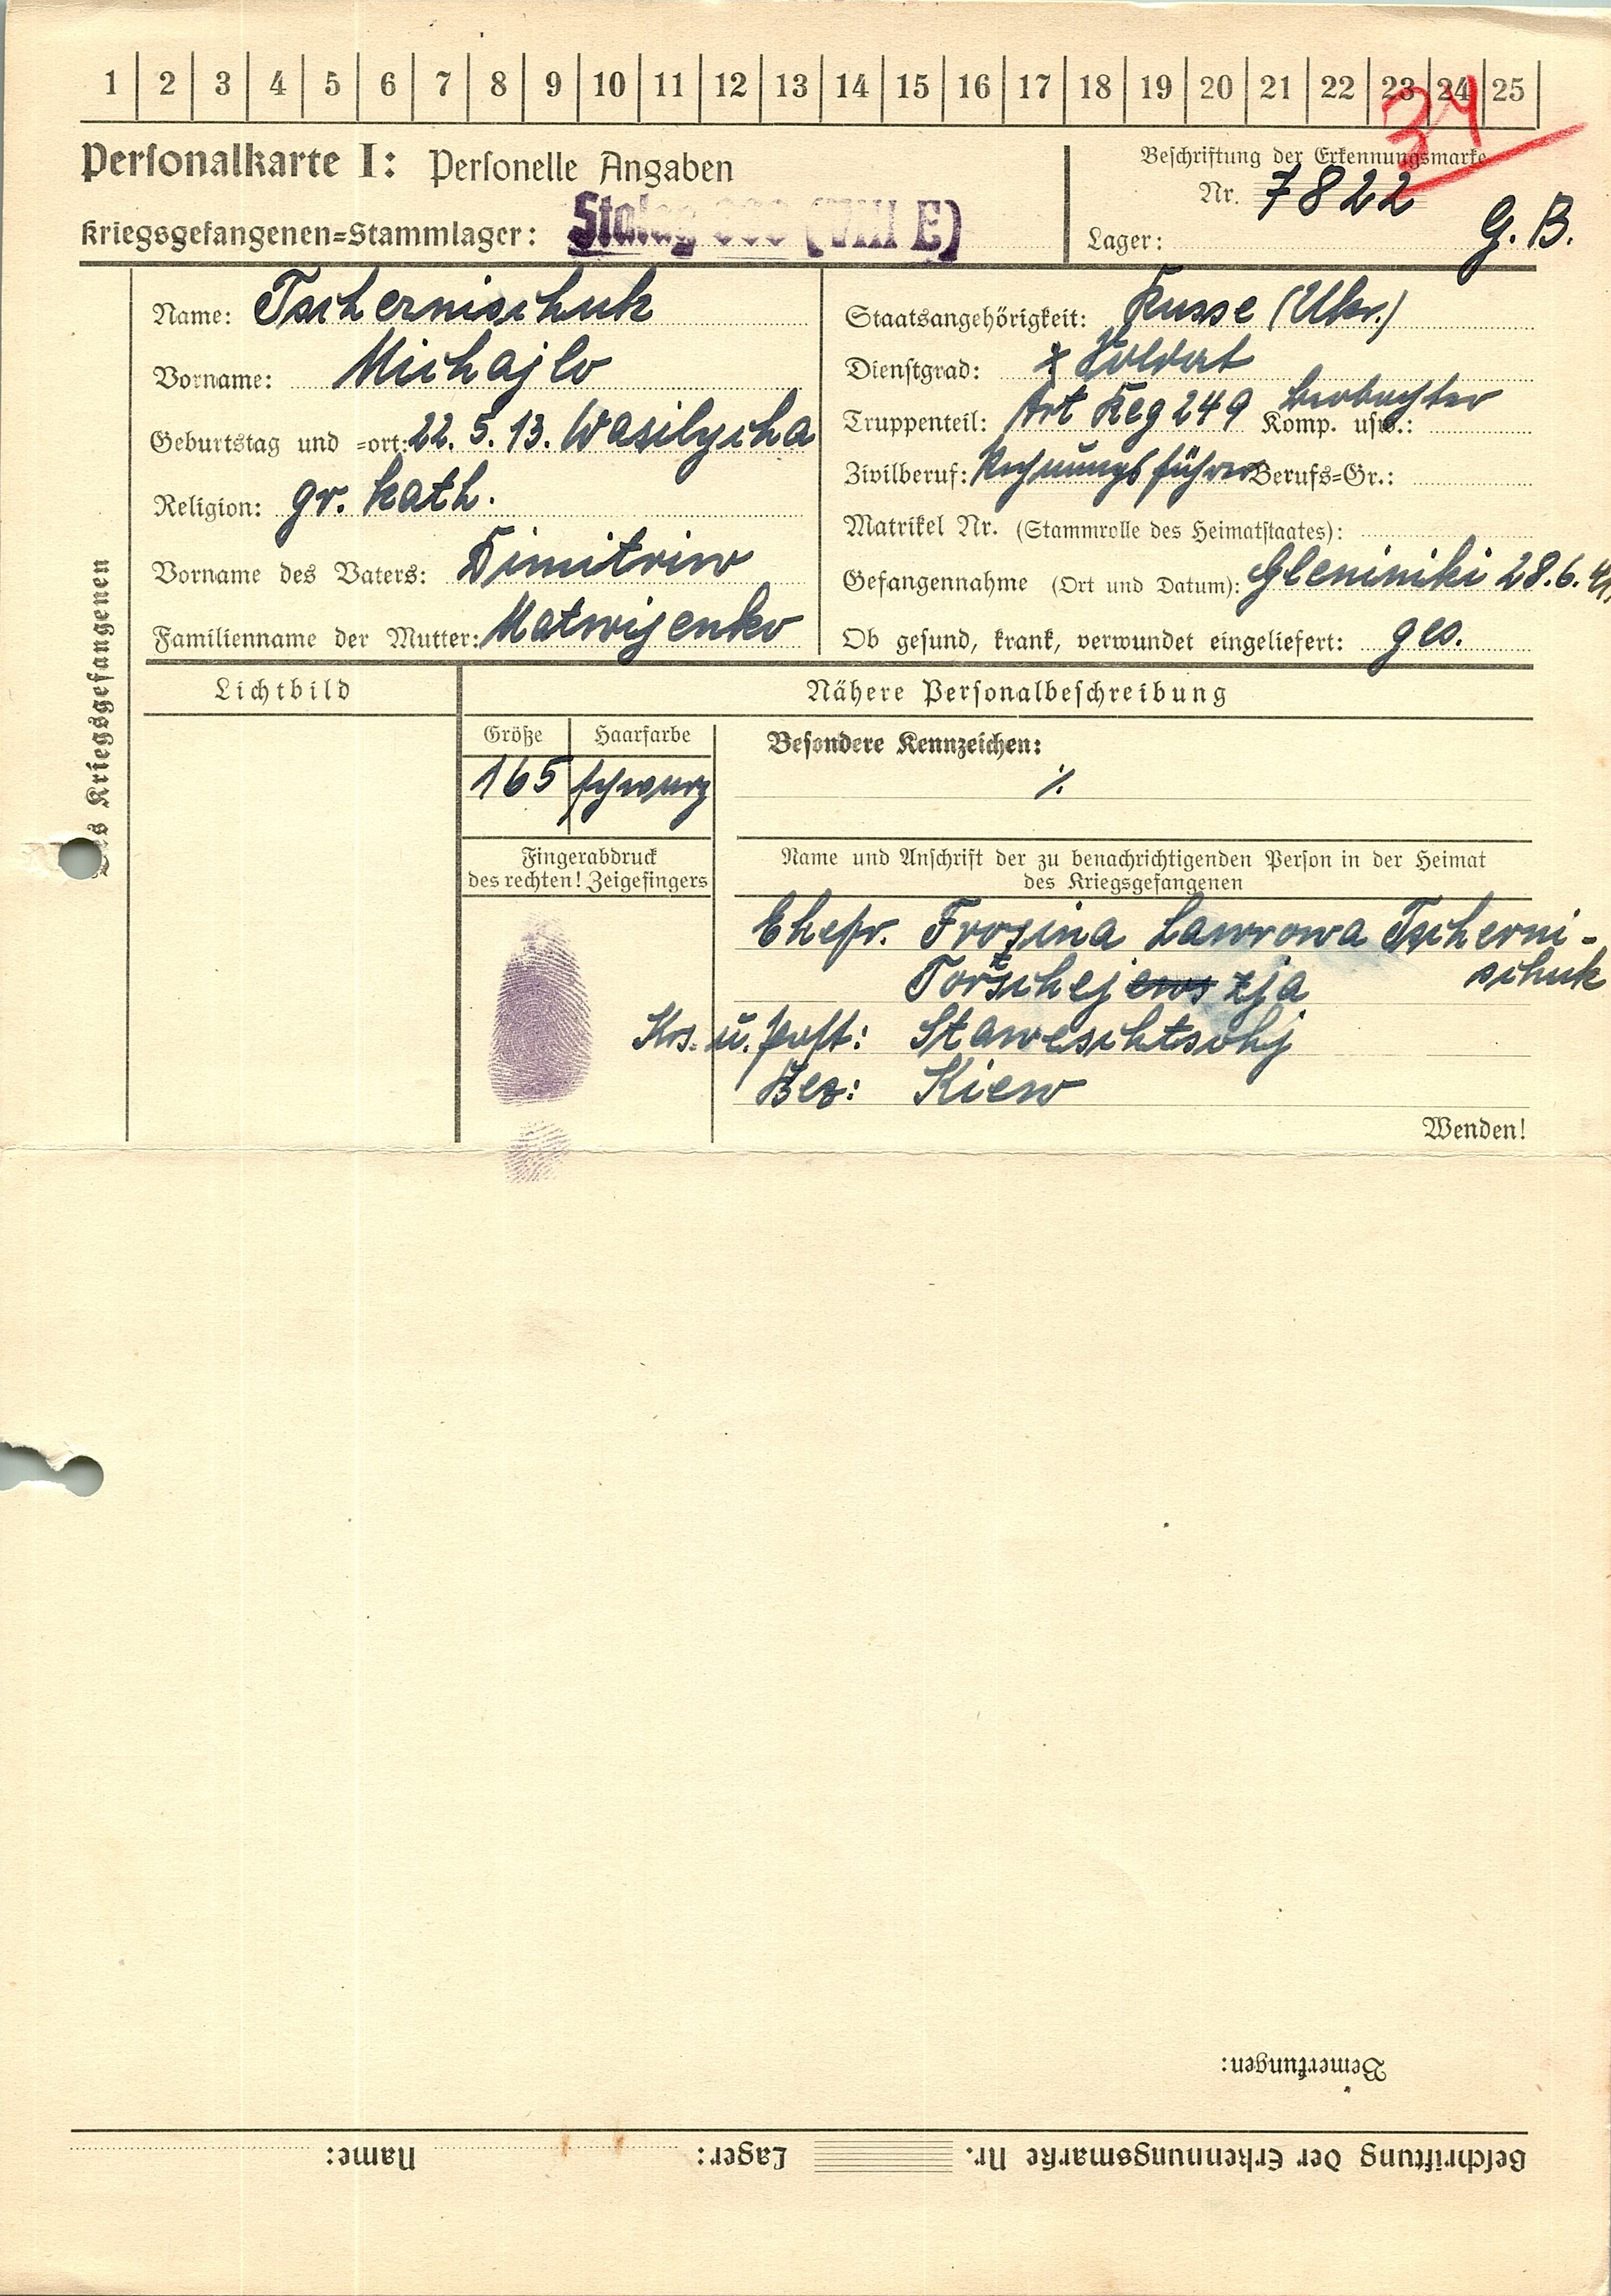 1 2 3 4 5 6 7 8 9 10 11 12 13 14 15 16 17 18 19 20 21 22 23 24 25
34
Personalkarte I: Personelle Angaben
Beschriftung der Erkennungsmarke
Nr. 7822
Kriegsgefangenen=Stammlager: Stalag (VIII E)
Lager: G. B.
Des Kriegsgefangenen
Name: Tschernischuk
Vorname: Michajlo
Geburtstag und =ort: 22. 5. 13. Wasilycha
Religion: gr. kath.
Vorname des Vaters: Dimitriw
Familienname der Mutter: Matwijenko
Staatsangehörigkeit: Russe (Ukr.)
Dienstgrad: Soldat
Truppenteil: Art Reg 249 Komp. usw.: Beobachter
Zivilberuf: Rechnungsführer Berufs=Gr.:
Matrikel Nr. (Stammrolle des Heimatstaates):
Gefangennahme (Ort und Datum): Gleniniki 28. 6. 41.
Ob gesund, krank, verwundet eingeliefert: ges.
Lichtbild
Nähere Personalbeschreibung
Größe Haarfarbe
165 schwarz
Besondere Kennzeichen:
./.
Fingerabdruck
des rechten! Zeigefingers
Name und Anschrift der zu benachrichtigenden Person in der Heimat
des Kriegsgefangenen
Ehefr. Frosina Lawrowa Tscherni-
schuk
Krs. u. Post: Staweschtschj
Bez: Kiew
Wenden!
Bemerkungen:
Beschriftung der Erkennungsmarke Nr. Lager: Name: